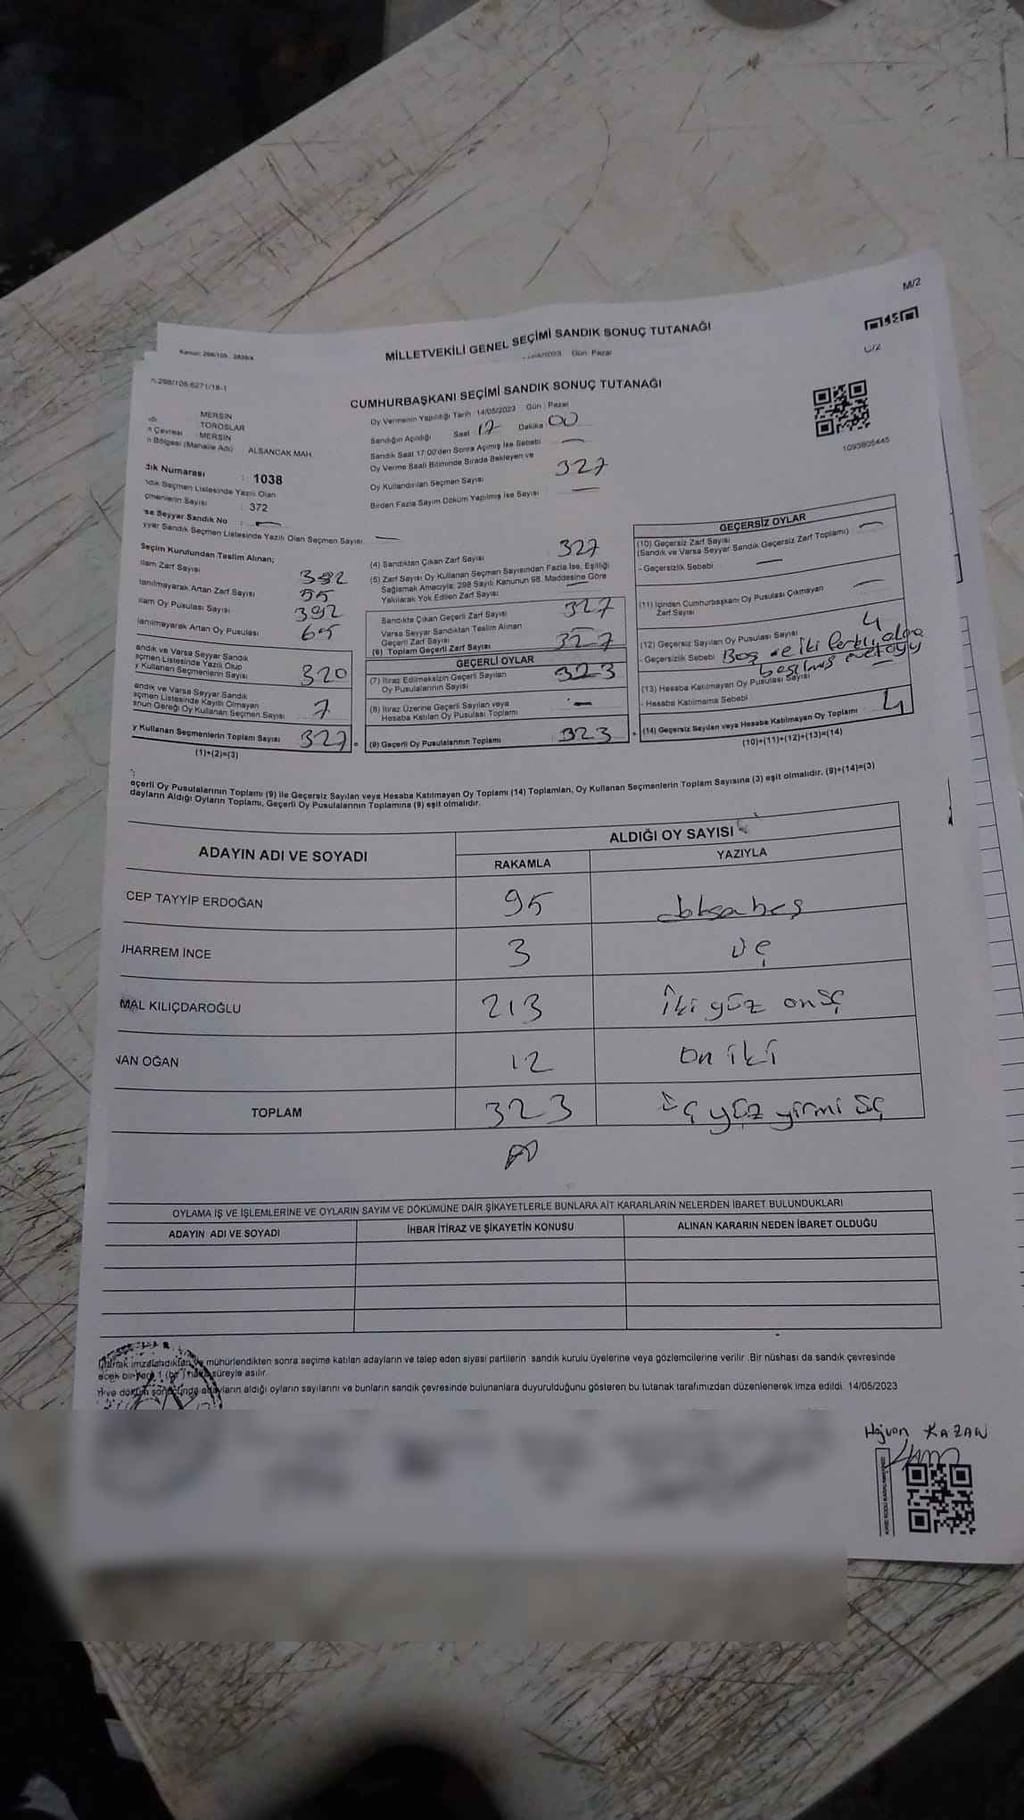 M/2
MİLLETVEKİLİ GENEL SEÇİMİ SANDIK SONUÇ TUTANAĞI
Gün: Pazar
CUMHURBAŞKANI SEÇİMİ SANDIK SONUÇ TUTANAĞI
MERSİN
TOROSLAR
n Çevresi MERSİN
n Bölgesi (Mahalle Adı) ALSANCAK MAH.
dık Numarası : 1038
ndık Seçmen Listesinde Yazılı Olan
çmenlerin Sayısı : 372
se Seyyar Sandık No : —
yyar Sandık Seçmen Listesinde Yazılı Olan Seçmen Sayısı —
Oy Vermenin Yapıldığı Tarih : 14/05/2023 Gün : Pazar
Sandığın Açıldığı Saat 17 Dakika 00
Sandık Saat 17:00'den Sonra Açılmış İse Sebebi —
Oy Verme Saati Bitiminde Sırada Bekleyen ve
Oy Kullandırılan Seçmen Sayısı 327
Birden Fazla Sayım Döküm Yapılmış İse Sayısı —
1093805445
Seçim Kurulundan Teslim Alınan;
lam Zarf Sayısı
lanılmayarak Artan Zarf Sayısı 55
lam Oy Pusulası Sayısı 392
lanılmayarak Artan Oy Pusulası 65
andık ve Varsa Seyyar Sandık
eçmen Listesinde Yazılı Olup
y Kullanan Seçmenlerin Sayısı 320
andık ve Varsa Seyyar Sandık
eçmen Listesinde Kayıtlı Olmayan
nun Gereği Oy Kullanan Seçmen Sayısı 7
y Kullanan Seçmenlerin Toplam Sayısı 327
(1)+(2)=(3)
(4) Sandıktan Çıkan Zarf Sayısı 327
(5) Zarf Sayısı Oy Kullanan Seçmen Sayısından Fazla İse, Eşitliği
Sağlamak Amacıyla, 298 Sayılı Kanunun 98. Maddesine Göre
Yakılarak Yok Edilen Zarf Sayısı —
Sandıkta Çıkan Geçerli Zarf Sayısı 327
Varsa Seyyar Sandıktan Teslim Alınan
Geçerli Zarf Sayısı —
(6) Toplam Geçerli Zarf Sayısı 327
GEÇERLİ OYLAR
(7) İtiraz Edilmeksizin Geçerli Sayılan
Oy Pusulalarının Sayısı 323
(8) İtiraz Üzerine Geçerli Sayılan veya
Hesaba Katılan Oy Pusulası Toplamı —
(9) Geçerli Oy Pusulalarının Toplamı 323
GEÇERSİZ OYLAR
(10) Geçersiz Zarf Sayısı
(Sandık ve Varsa Seyyar Sandık Geçersiz Zarf Toplamı) —
- Geçersizlik Sebebi —
(11) İçinden Cumhurbaşkanı Oy Pusulası Çıkmayan
Zarf Sayısı
(12) Geçersiz Sayılan Oy Pusulası Sayısı 4
- Geçersizlik Sebebi Boş ve iki
(13) Hesaba Katılmayan Oy Pusulası Sayısı —
- Hesaba Katılmama Sebebi
(14) Geçersiz Sayılan veya Hesaba Katılmayan Oy Toplamı 4
(10)+(11)+(12)+(13)=(14)
eçerli Oy Pusulalarının Toplamı (9) ile Geçersiz Sayılan veya Hesaba Katılmayan Oy Toplamı (14) Toplamları, Oy Kullanan Seçmenlerin Toplam Sayısına (3) eşit olmalıdır. (9)+(14)=(3)
dayların Aldığı Oyların Toplamı, Geçerli Oy Pusulalarının Toplamına (9) eşit olmalıdır.
ADAYIN ADI VE SOYADI
ALDIĞI OY SAYISI
RAKAMLA YAZIYLA
CEP TAYYİP ERDOĞAN 95
JHARREM İNCE 3 üç
MAL KILIÇDAROĞLU 213 iki yüz on üç
NAN OĞAN 12 on iki
TOPLAM 323 üç yüz yirmi üç
OYLAMA İŞ VE İŞLEMLERİNE VE OYLARIN SAYIM VE DÖKÜMÜNE DAİR ŞİKAYETLERLE BUNLARA AİT KARARLARIN NELERDEN İBARET BULUNDUKLARI
ADAYIN ADI VE SOYADI İHBAR İTİRAZ VE ŞİKAYETİN KONUSU ALINAN KARARIN NEDEN İBARET OLDUĞU
mühürlendikten sonra seçime katılan adayların ve talep eden siyasi partilerin sandık kurulu üyelerine veya gözlemcilerine verilir. Bir nüshası da sandık çevresinde
süreyle asılır.
adayların aldığı oyların sayılarını ve bunların sandık çevresinde bulunanlara duyurulduğunu gösteren bu tutanak tarafımızdan düzenlenerek imza edildi. 14/05/2023
KAZAN